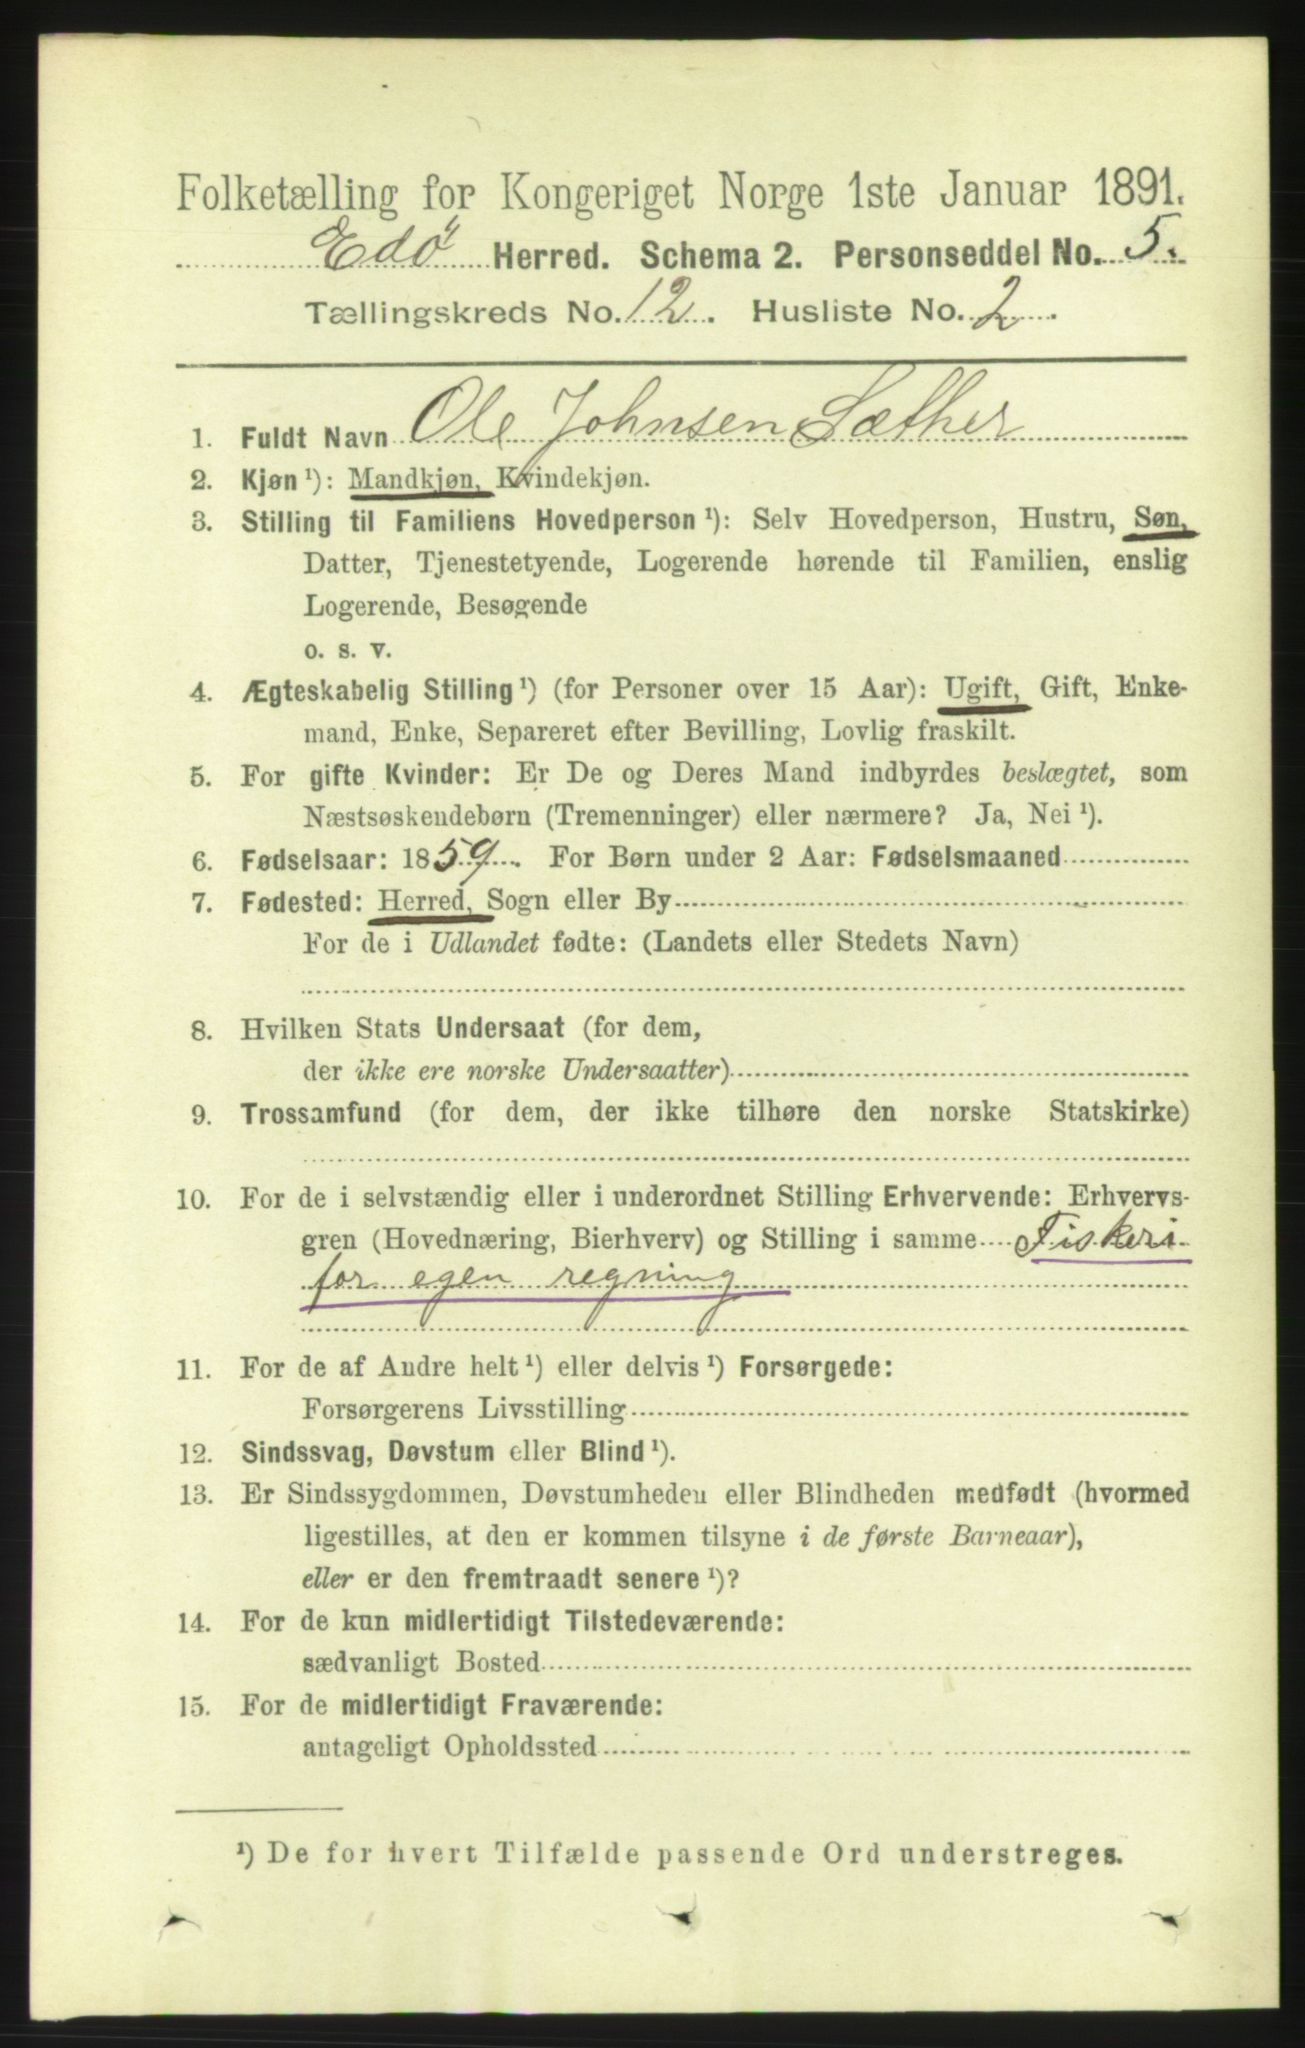 Folketælling for Kongeriget Norge 1ste Januar 1891.
Edö Herred. Schema 2. Personseddel No. 5.
Tællingskreds No. 12. Husliste No. 2.
1. Fuldt Navn Ole Johnsen Sæther
2. Kjøn ¹): Mandkjøn, Kvindekjøn.
3. Stilling til Familiens Hovedperson ¹): Selv Hovedperson, Hustru, Søn,
Datter, Tjenestetyende, Logerende hørende til Familien, enslig
Logerende, Besøgende
o. s. v.
4. Ægteskabelig Stilling ¹) (for Personer over 15 Aar): Ugift, Gift, Enke-
mand, Enke, Separeret efter Bevilling, Lovlig fraskilt.
5. For gifte Kvinder: Er De og Deres Mand indbyrdes beslægtet, som
Næstsøskendebørn (Tremenninger) eller nærmere? Ja, Nei ¹).
6. Fødselsaar: 1859. For Børn under 2 Aar: Fødselsmaaned
7. Fødested: Herred, Sogn eller By
For de i Udlandet fødte: (Landets eller Stedets Navn)
8. Hvilken Stats Undersaat (for dem,
der ikke ere norske Undersaatter)
9. Trossamfund (for dem, der ikke tilhøre den norske Statskirke)
10. For de i selvstændig eller i underordnet Stilling Erhvervende: Erhvervs-
gren (Hovednæring, Bierhverv) og Stilling i samme Fiskeri
for egen regning
11. For de af Andre helt ¹) eller delvis ¹) Forsørgede:
Forsørgerens Livsstilling
12. Sindssvag, Døvstum eller Blind ¹).
13. Er Sindssygdommen, Døvstumheden eller Blindheden medfødt (hvormed
ligestilles, at den er kommen tilsyne i de første Barneaar),
eller er den fremtraadt senere ¹)?
14. For de kun midlertidigt Tilstedeværende:
sædvanligt Bosted
15. For de midlertidigt Fraværende:
antageligt Opholdssted
¹) De for hvert Tilfælde passende Ord understreges.